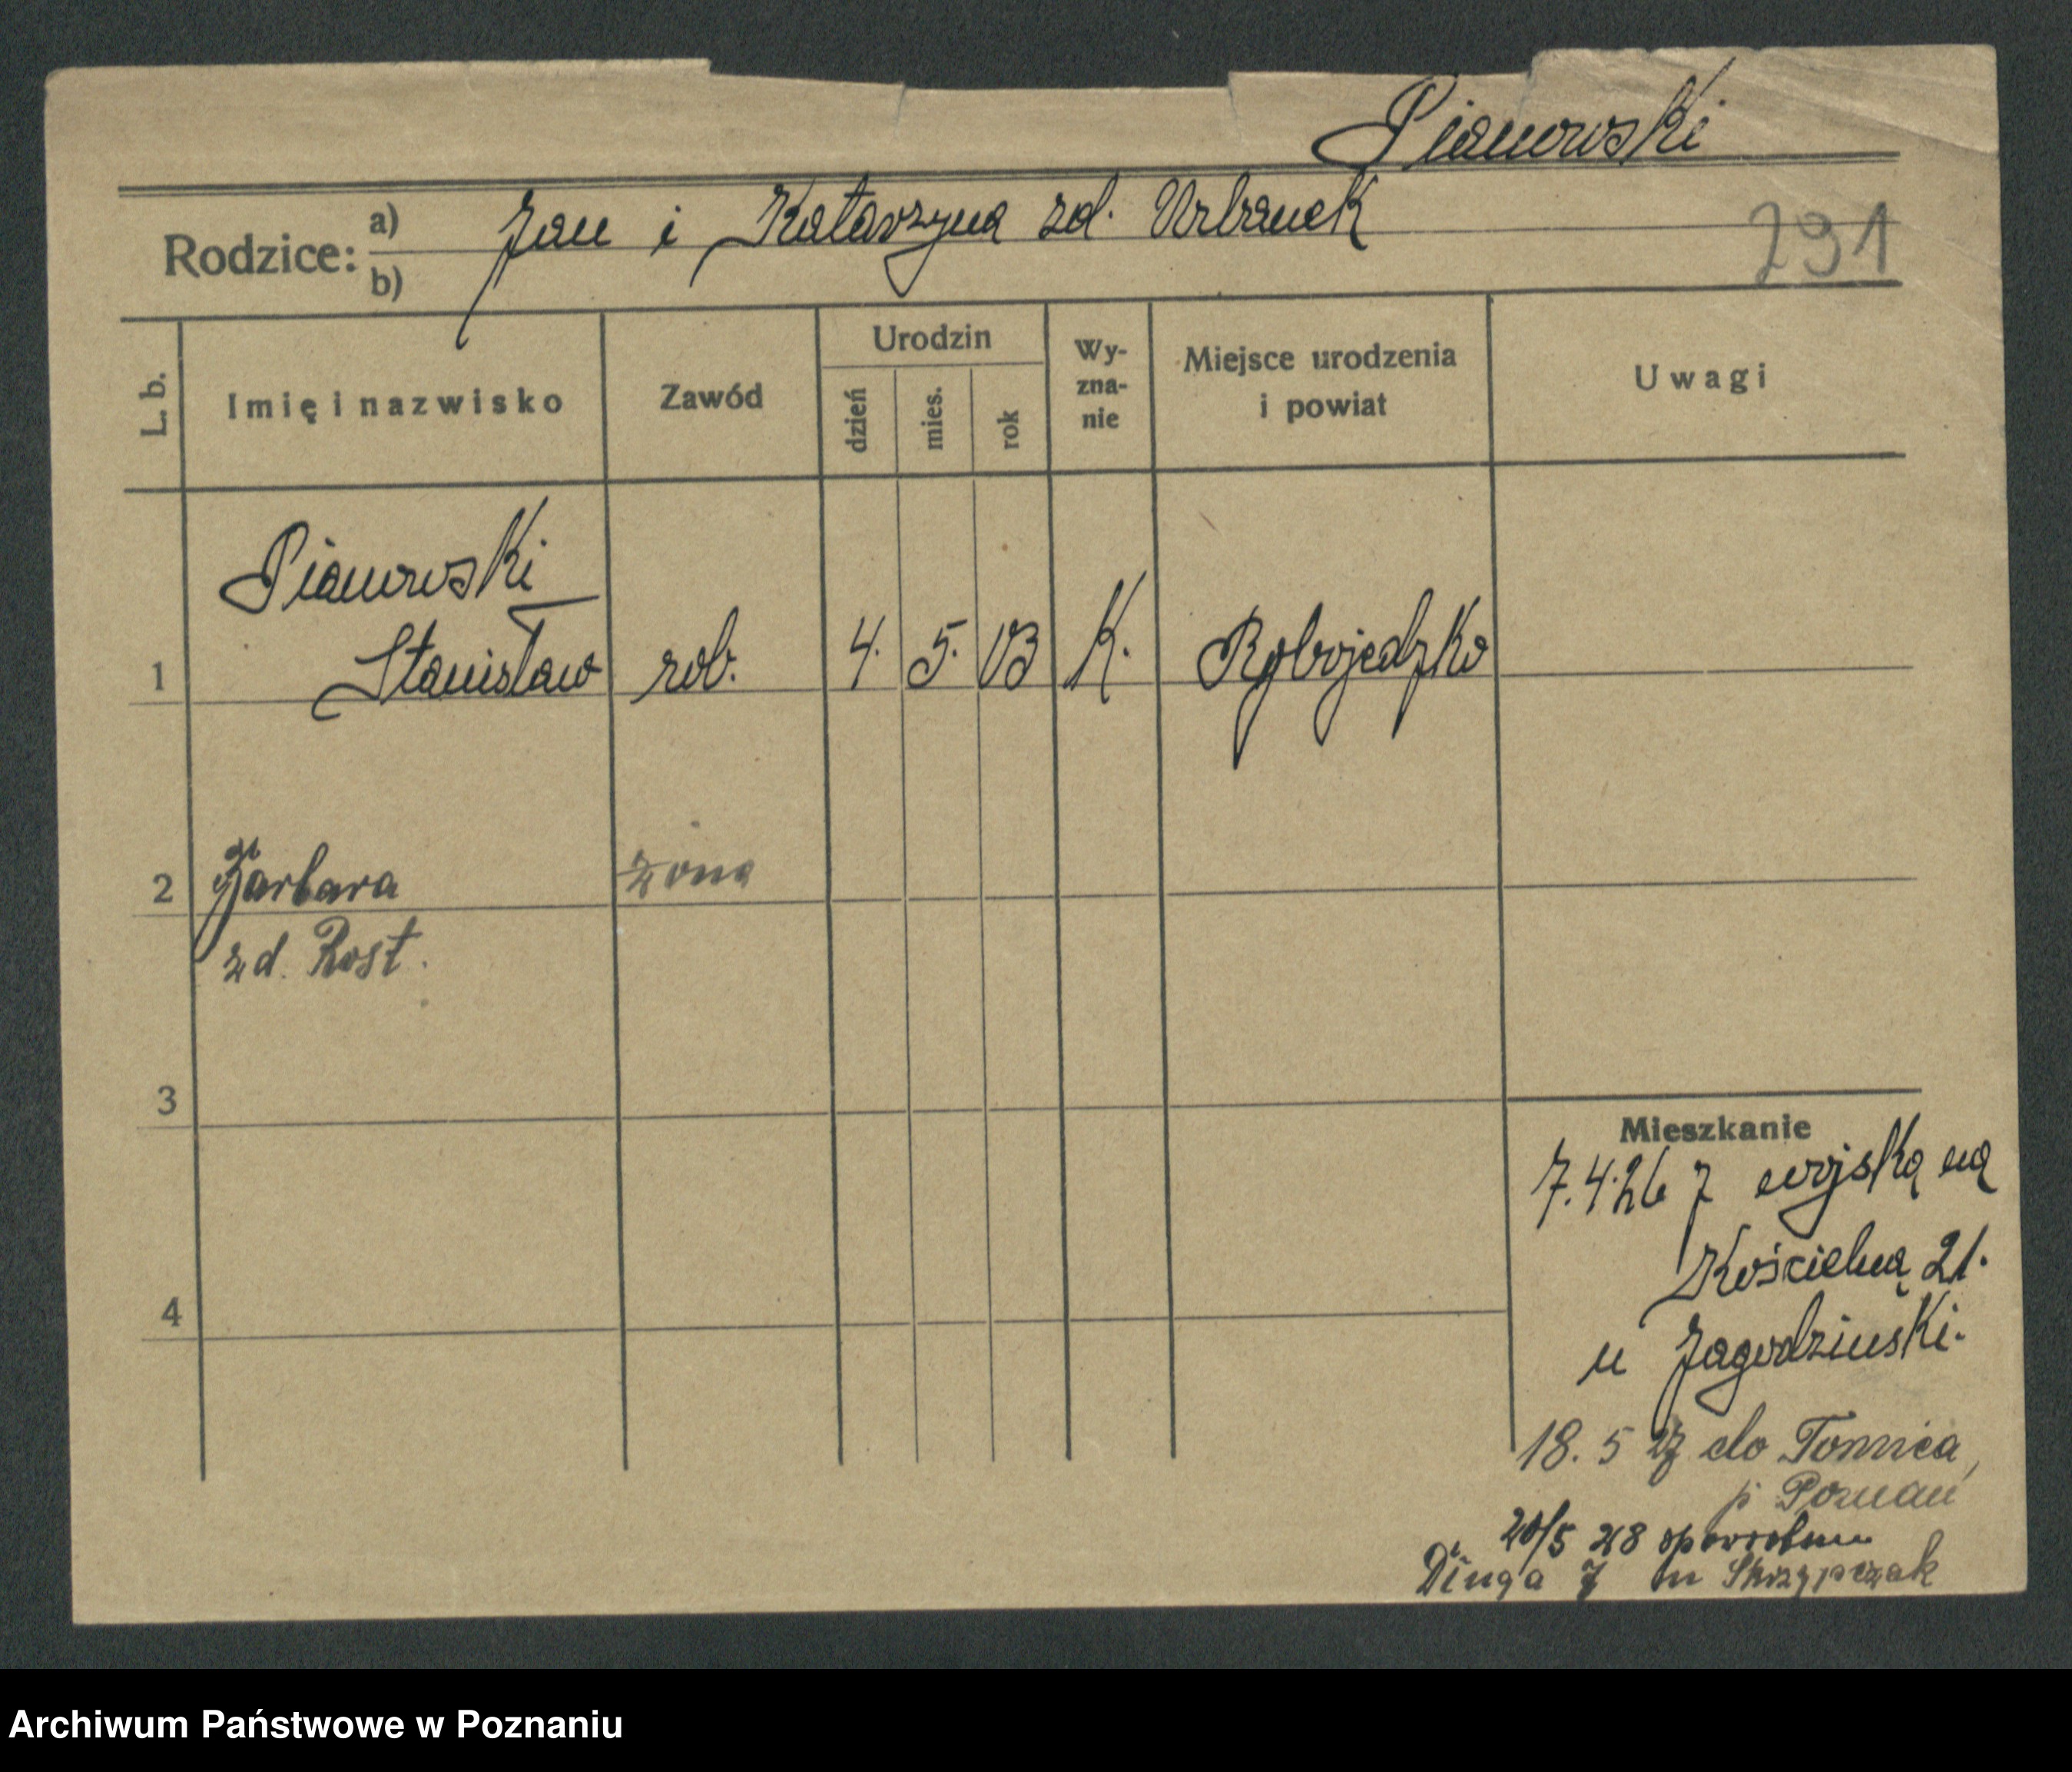 Pianowski
Rodzice: a) Jan i Katarzyna zd. Urbanek
b)
291
L. b. Imię i nazwisko Zawód Urodzin dzień mies. rok Wy-zna-nie Miejsce urodzenia i powiat Uwagi
Pianowski
1 Stanisław rob. 4. 5. 03 K. Rybojedzko
2 Barbara żona
zd. Rost.
3
Mieszkanie
7.4.26 z wojska na
Kościelną 21.
4
u Jagodzinski.
18. 5 27 do Tomica,
p Poznań
20/5 28
Długa 7 m Skrzypczak
Archiwum Państwowe w Poznaniu